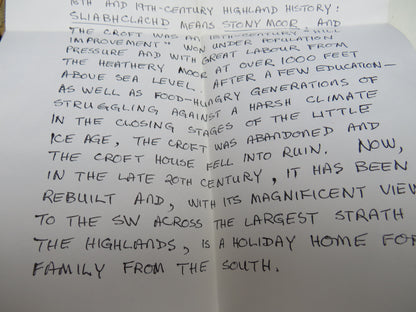 18TH AND 19TH-CENTURY HIGHLAND HISTORY:
SLIABHCLACHD MEANS STONY MOOR, AND
THE CROFT WAS AN 18TH-CENTURY "HILL
IMPROVEMENT" WON UNDER POPULATION
PRESSURE AND WITH GREAT LABOUR FROM
THE HEATHERY MOOR AT OVER 1000 FEET
ABOVE SEA LEVEL. AFTER A FEW EDUCATION-
AS WELL AS FOOD-HUNGRY GENERATIONS OF
STRUGGLING AGAINST A HARSH CLIMATE
IN THE CLOSING STAGES OF THE LITTLE
ICE AGE, THE CROFT WAS ABANDONED AND
THE CROFT HOUSE FELL INTO RUIN. NOW,
IN THE LATE 20TH CENTURY, IT HAS BEEN
REBUILT AND, WITH ITS MAGNIFICENT VIEW
TO THE SW ACROSS THE LARGEST STRATH
THE HIGHLANDS, IS A HOLIDAY HOME FOR
FAMILY FROM THE SOUTH.